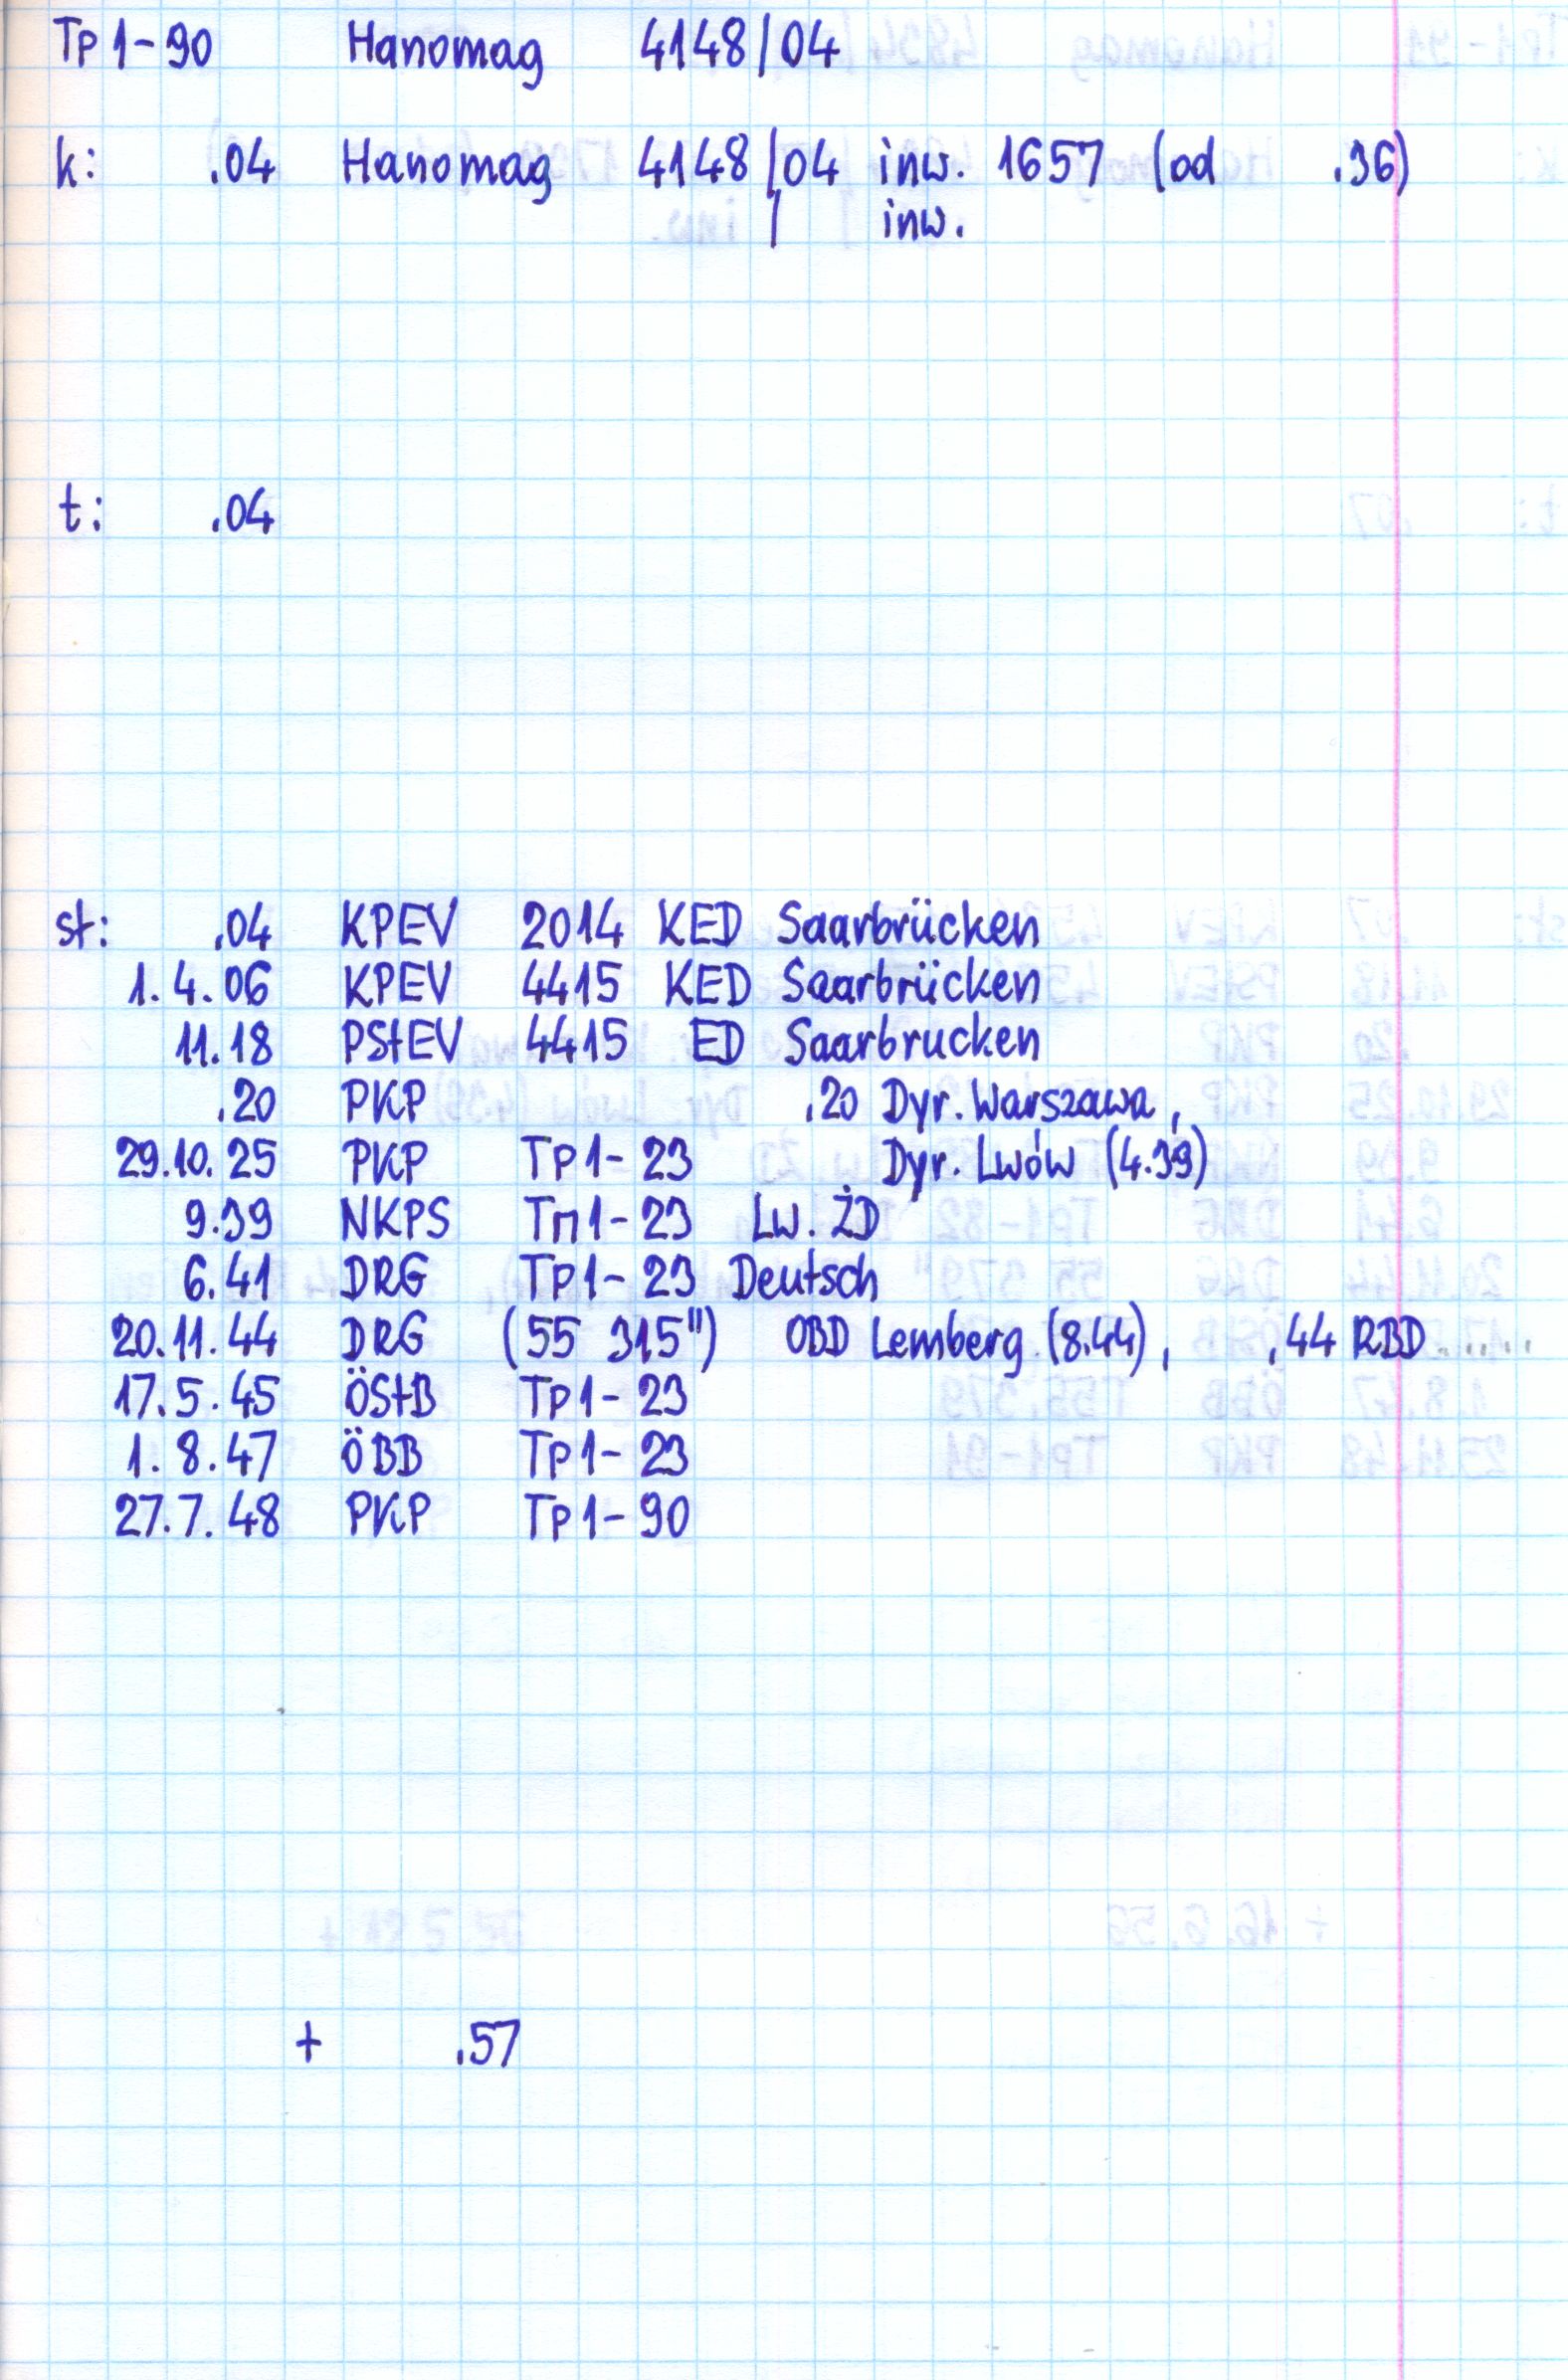 Tp 1-90 Hanomag 4148/04
k: .04 Hanomag 4148/04 inw. 1657 (od .36)
/ inw.
t: .04
st: .04 KPEV 2014 KED Saarbrücken
1.4.06 KPEV 4415 KED Saarbrücken
11.18 PStEV 4415 ED Saarbrucken
.20 PKP .20 Dyr. Warszawa,
29.10.25 PKP Tp1-23 Dyr. Lwów (4.39)
9.39 NKPS Тп1-23 Lw. ŻD
6.41 DRG Tp1-23 Deutsch
20.11.44 DRG (55 315") OBD Lemberg (8.44), .44 RBD.....
17.5.45 ÖStB Tp1-23
1.8.47 ÖBB Tp1-23
27.7.48 PKP Tp1-90
+ .57